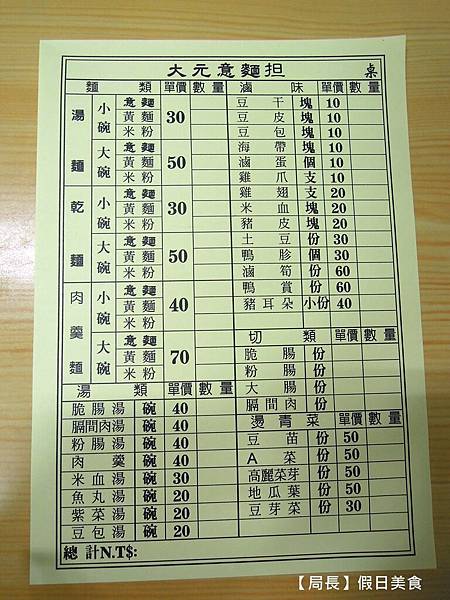 大元意麵担 桌
麵類 單價 數量
湯麵 小碗 意麵 黃麵 米粉 30
大碗 意麵 黃麵 米粉 50
乾麵 小碗 意麵 黃麵 米粉 30
大碗 意麵 黃麵 米粉 50
肉羹麵 小碗 意麵 黃麵 米粉 40
大碗 意麵 黃麵 米粉 70
湯類 單價 數量
脆腸湯 碗 40
膈間肉湯 碗 40
粉腸湯 碗 40
肉羹 碗 40
米血湯 碗 30
魚丸湯 碗 20
紫菜湯 碗 20
豆包湯 碗 20
滷味 單價 數量
豆干 塊 10
豆皮 塊 10
豆包 塊 10
海帶 塊 10
滷蛋 個 10
雞爪 支 10
雞翅 支 20
米血 塊 20
豬皮 塊 20
土豆 份 30
鴨胗 個 30
滷筍 份 60
鴨賞 份 60
豬耳朵 小份 40
切類 單價 數量
脆腸 份
粉腸 份
大腸 份
膈間肉 份
燙青菜 單價 數量
豆苗 份 50
A菜 份 50
高麗菜芽 份 50
地瓜葉 份 50
豆芽菜 份 30
總計N.T$:
【局長】假日美食